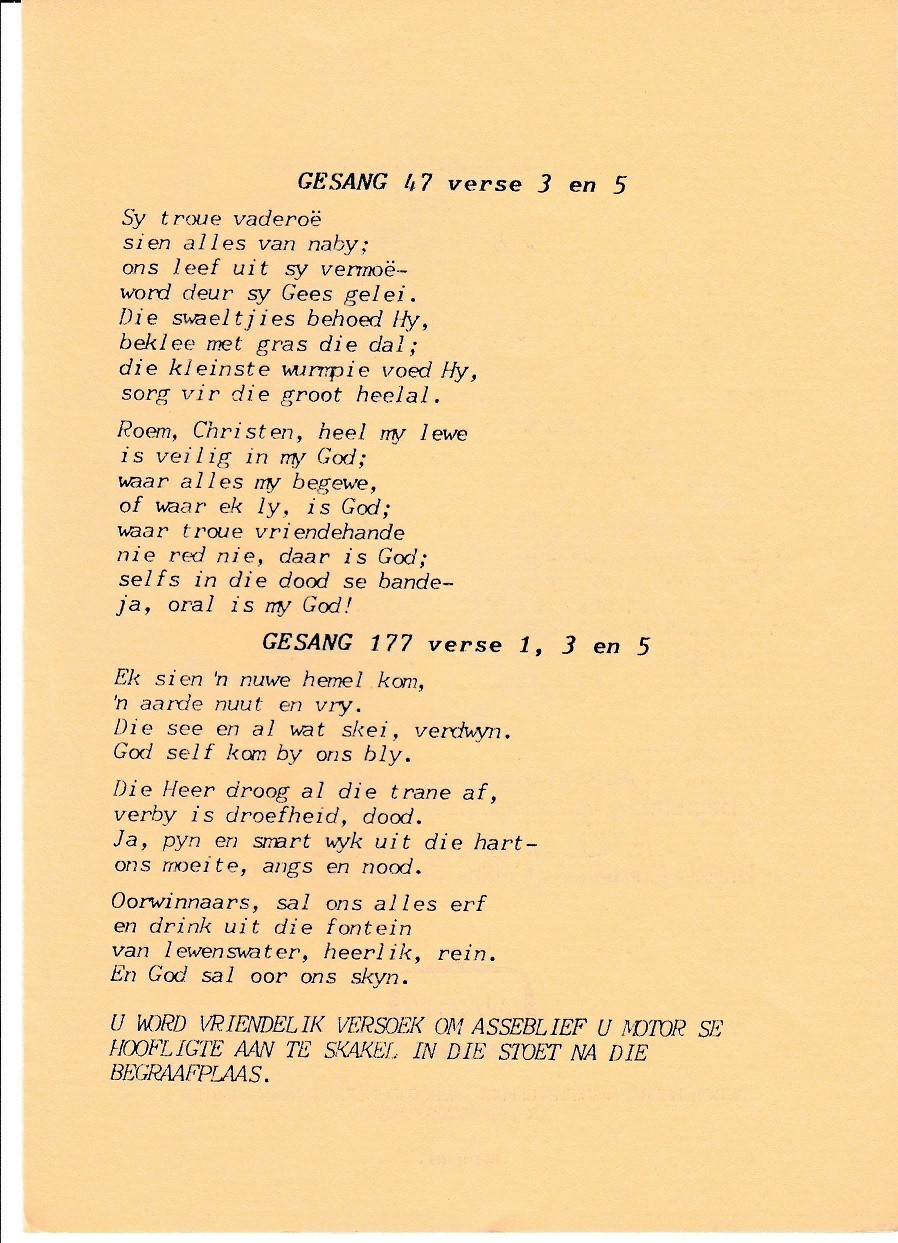 GESANG 47 verse 3 en 5
Sy troue vaderoë
sien alles van naby;
ons leef uit sy vermoë-
word deur sy Gees gelei.
Die swaeltjies behoed Hy,
beklee met gras die dal;
die kleinste wurmpie voed Hy,
sorg vir die groot heelal.
Roem, Christen, heel my lewe
is veilig in my God;
waar alles my begewe,
of waar ek ly, is God;
waar troue vriendehande
nie red nie, daar is God;
selfs in die dood se bande-
ja, oral is my God!
GESANG 177 verse 1, 3 en 5
Ek sien 'n nuwe hemel kom,
'n aarde nuut en vry.
Die see en al wat skei, verdwyn.
God self kom by ons bly.
Die Heer droog al die trane af,
verby is droefheid, dood.
Ja, pyn en smart wyk uit die hart-
ons moeite, angs en nood.
Oorwinnaars, sal ons alles erf
en drink uit die fontein
van lewenswater, heerlik, rein.
En God sal oor ons skyn.
U WORD VRIENDELIK VERSOEK OM ASSEBLIEF U MOTOR SE
HOOFLIGTE AAN TE SKAKEL IN DIE STOET NA DIE
BEGRAAFPLAAS.